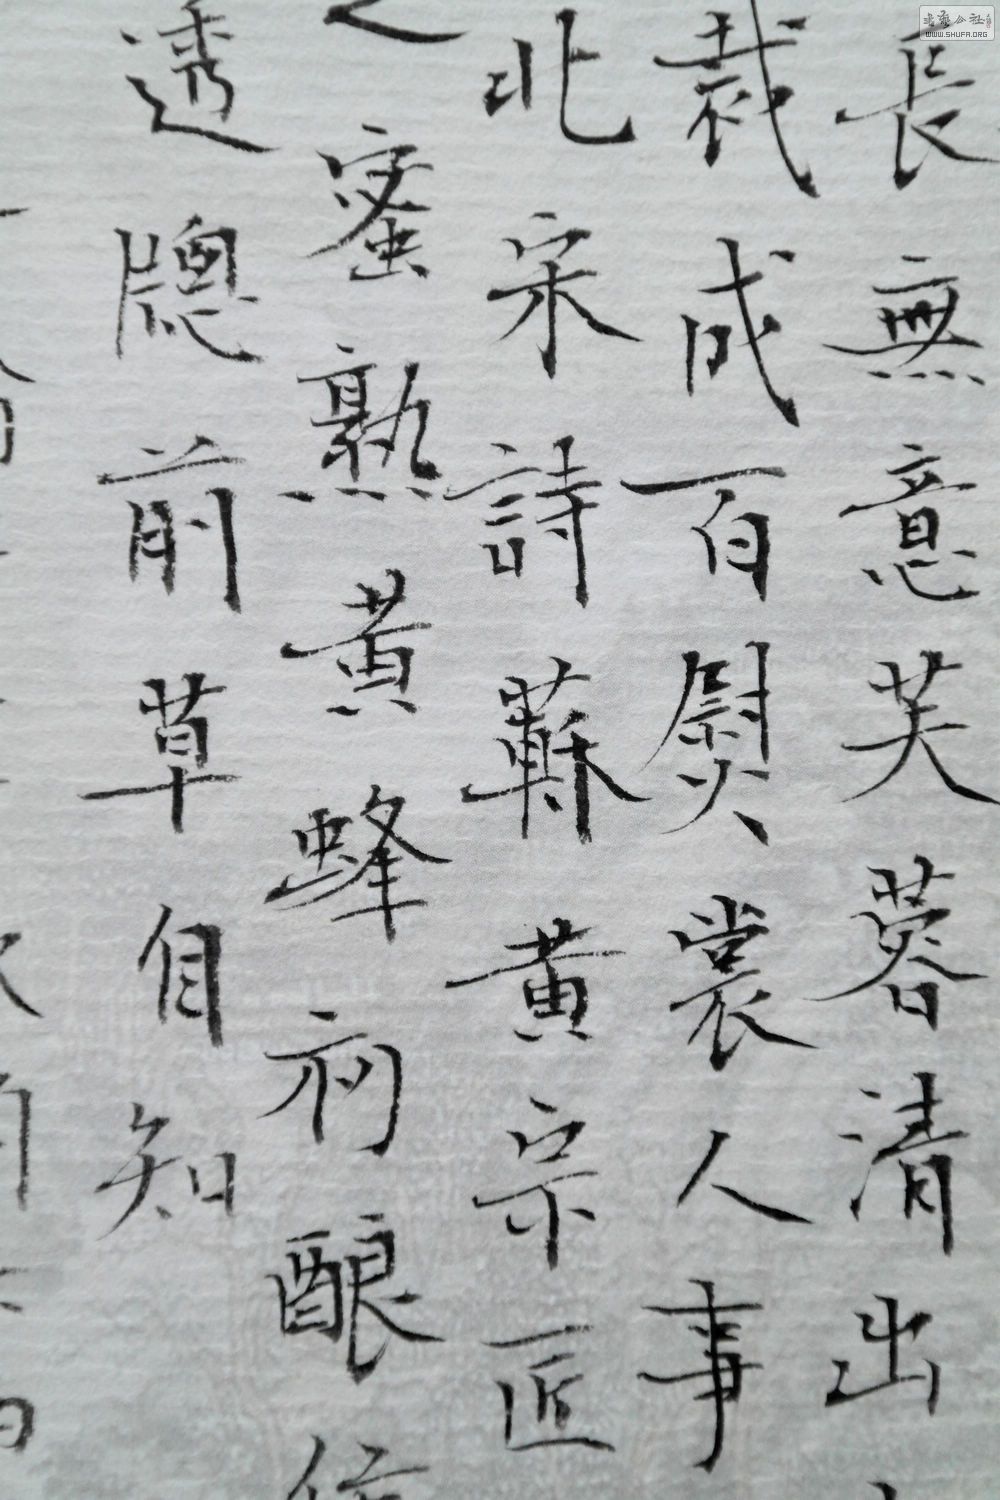 長無意芙蓉清出
裁成百熨裳人事
北宋詩蘇黄宗匠
蜜熟黄蜂初酿
透牕前草自知
书法公社
WWW.SHUFA.ORG